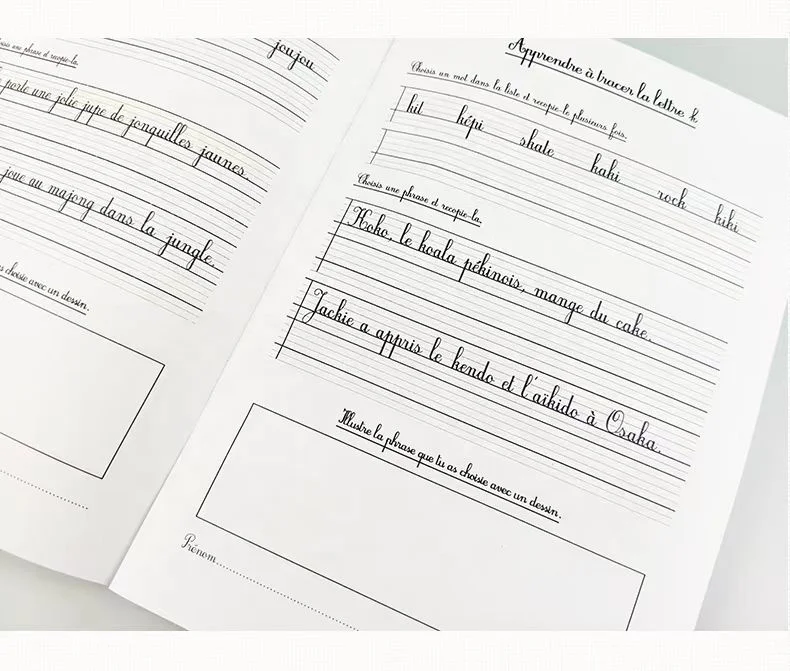 joujou
une phrase et recopie-la.
porte une jolie jupe de jonquilles jaunes.
joue au majong dans la jungle.
choisie avec un dessin.
Apprendre à tracer la lettre k
Choisis un mot dans la liste et recopie-le plusieurs fois.
kit képi skate kaki rock kiki
Choisis une phrase et recopie-la.
Koko, le koala pékinois, mange du cake.
Jackie a appris le kendo et l'aïkido à Osaka.
Illustre la phrase que tu as choisie avec un dessin.
Prénom